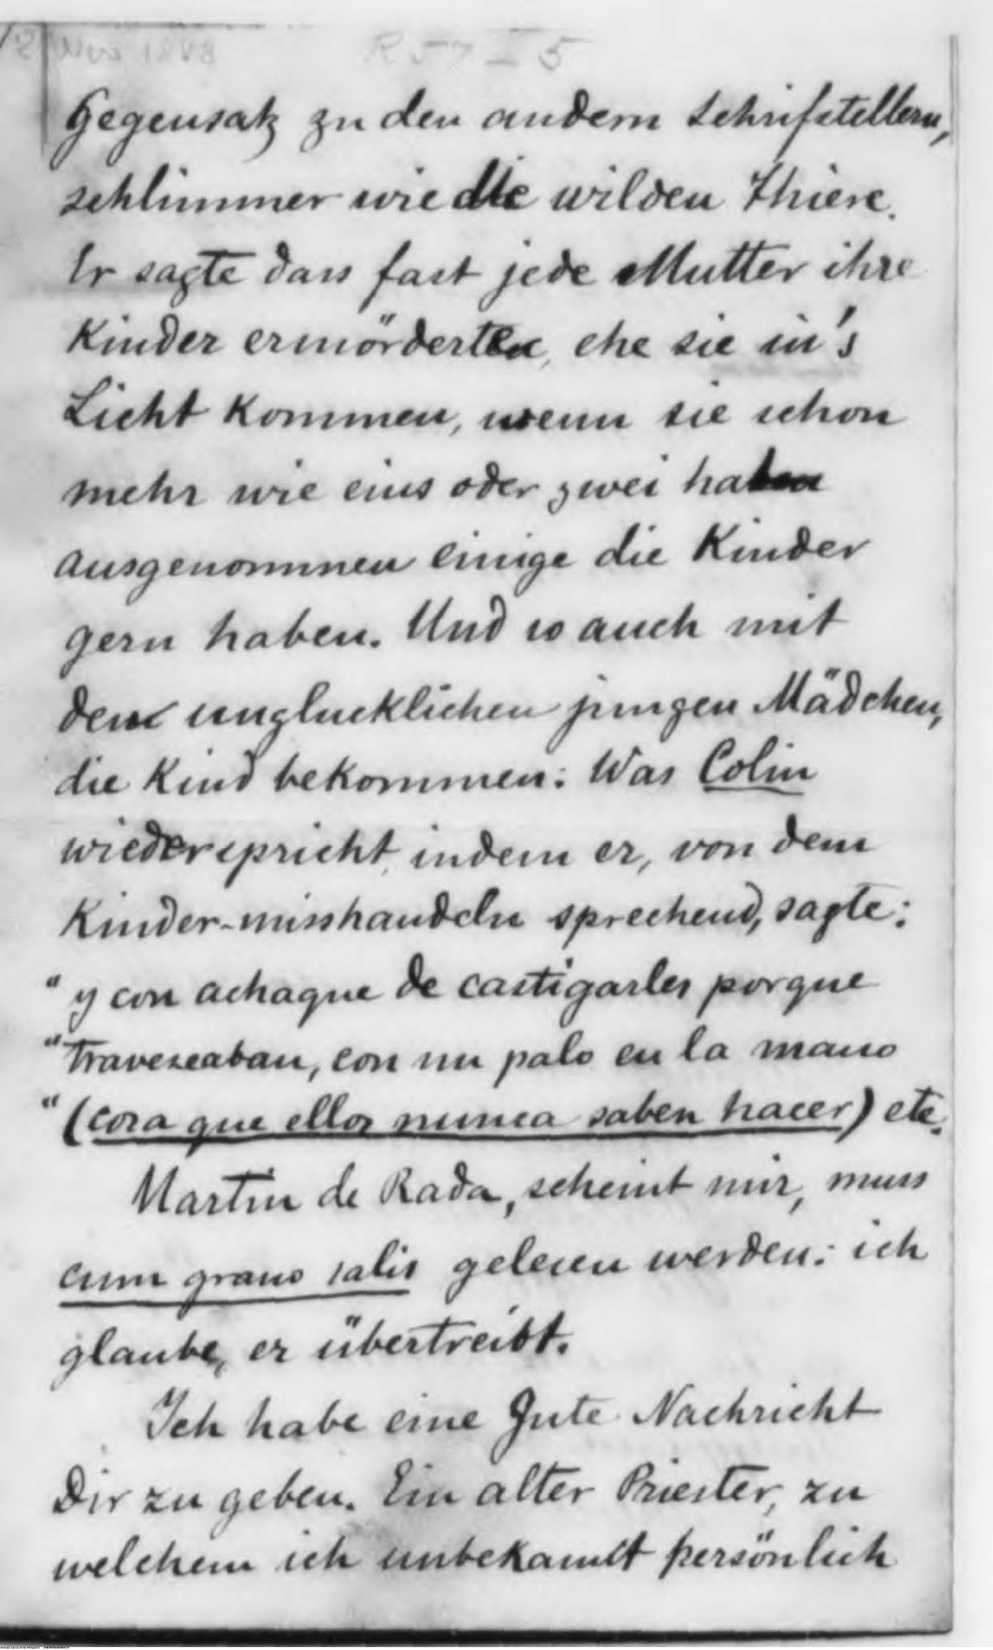 R57-I-5
Gegensatz zu den andern Schrifstellern,
schlimmer wie die wilden Thiere.
Er sagte dass fast jede Mutter ihre
Kinder ermörderten, ehe sie in's
Licht kommen, wenn sie schon
mehr wie eins oder zwei haben
ausgenommen einige die Kinder
gern haben. Und so auch mit
dem unglucklichen jungen Mädchen,
die Kind bekommen: Was Colin
wiederspricht, indem er, von dem
Kinder-misshandeln sprechend, sagte:
"y con achaque de castigarles porque
"traveseaban, con un palo en la mano
"(cosa que ellos nunca saben hacer) etc.
Martin de Rada, scheint mir, muss
cum grano salis gelesen werden: ich
glaube, er übertreibt.
Ich habe eine Gute Nachricht
Dir zu geben. Ein alter Priester, zu
welchem ich unbekannt persönlich